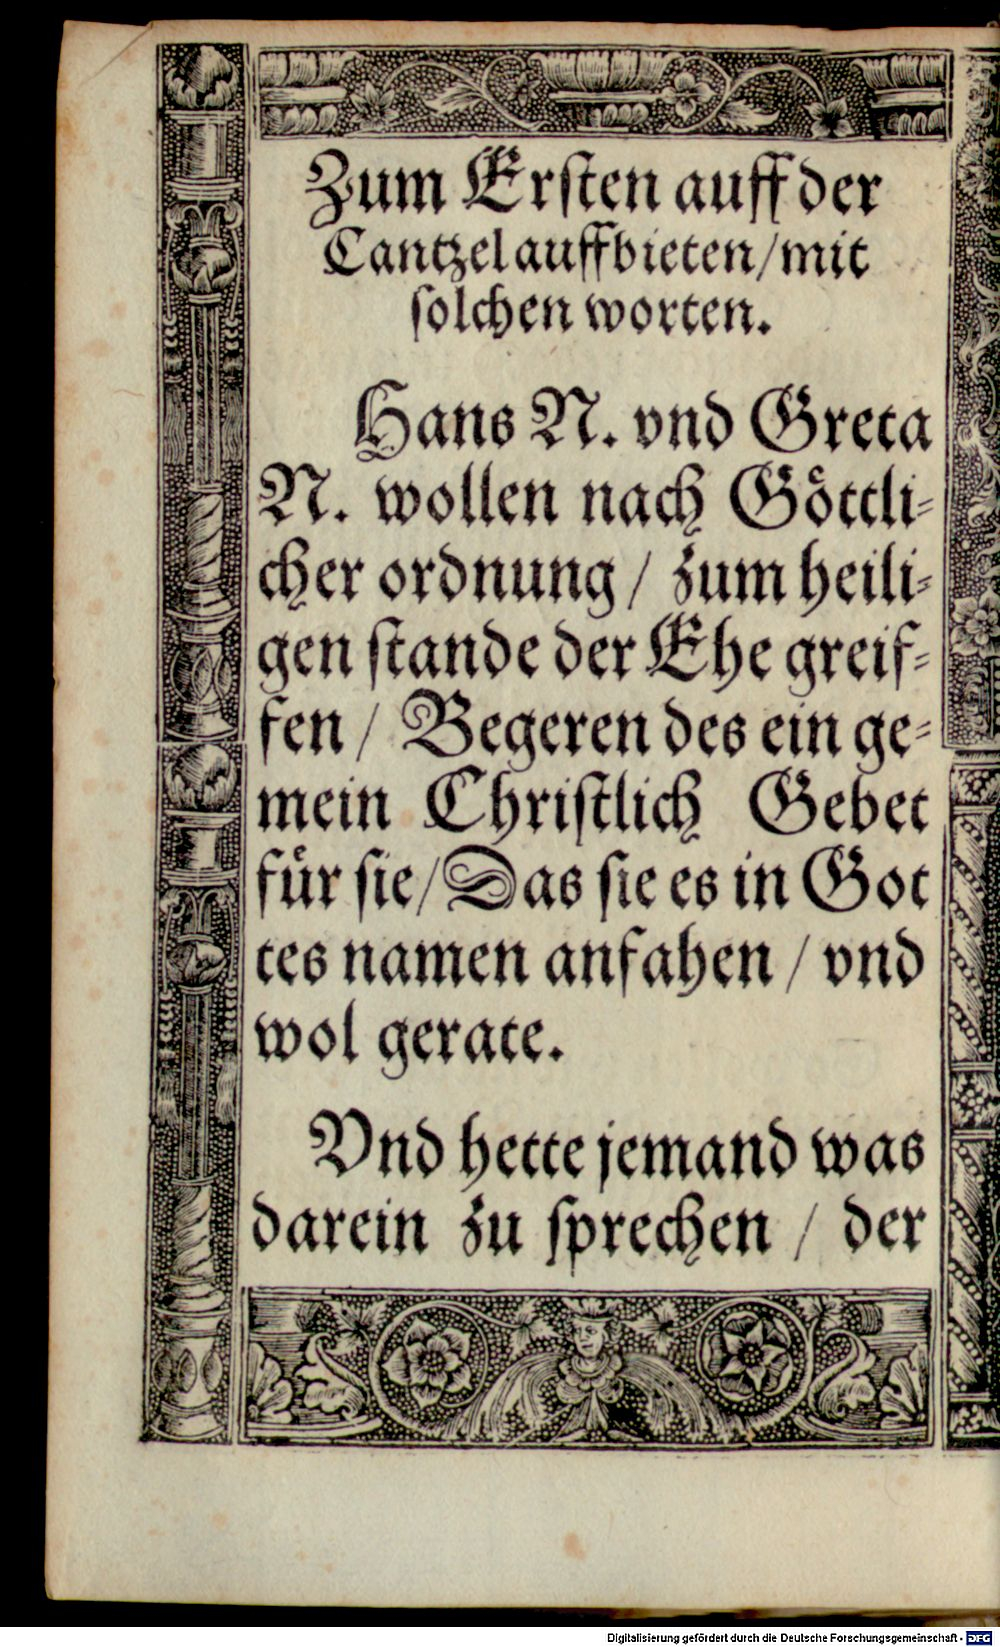 Zum Erſten auff der
Cantzel auffbieten/mit
ſolchen worten.
Hans N. vnd Greta
N. wollen nach Goͤttli⸗
cher ordnung / zum heili⸗
gen ſtande der Ehe greif⸗
fen / Begeren des ein ge⸗
mein Chriſtlich Gebet
fuͤr ſie/Das ſie es in Got
tes namen anfahen / vnd
wol gerate.
Vnd hette jemand was
darein zu ſprechen / der
Digitalisierung gefördert durch die Deutsche Forschungsgemeinschaft - DFG